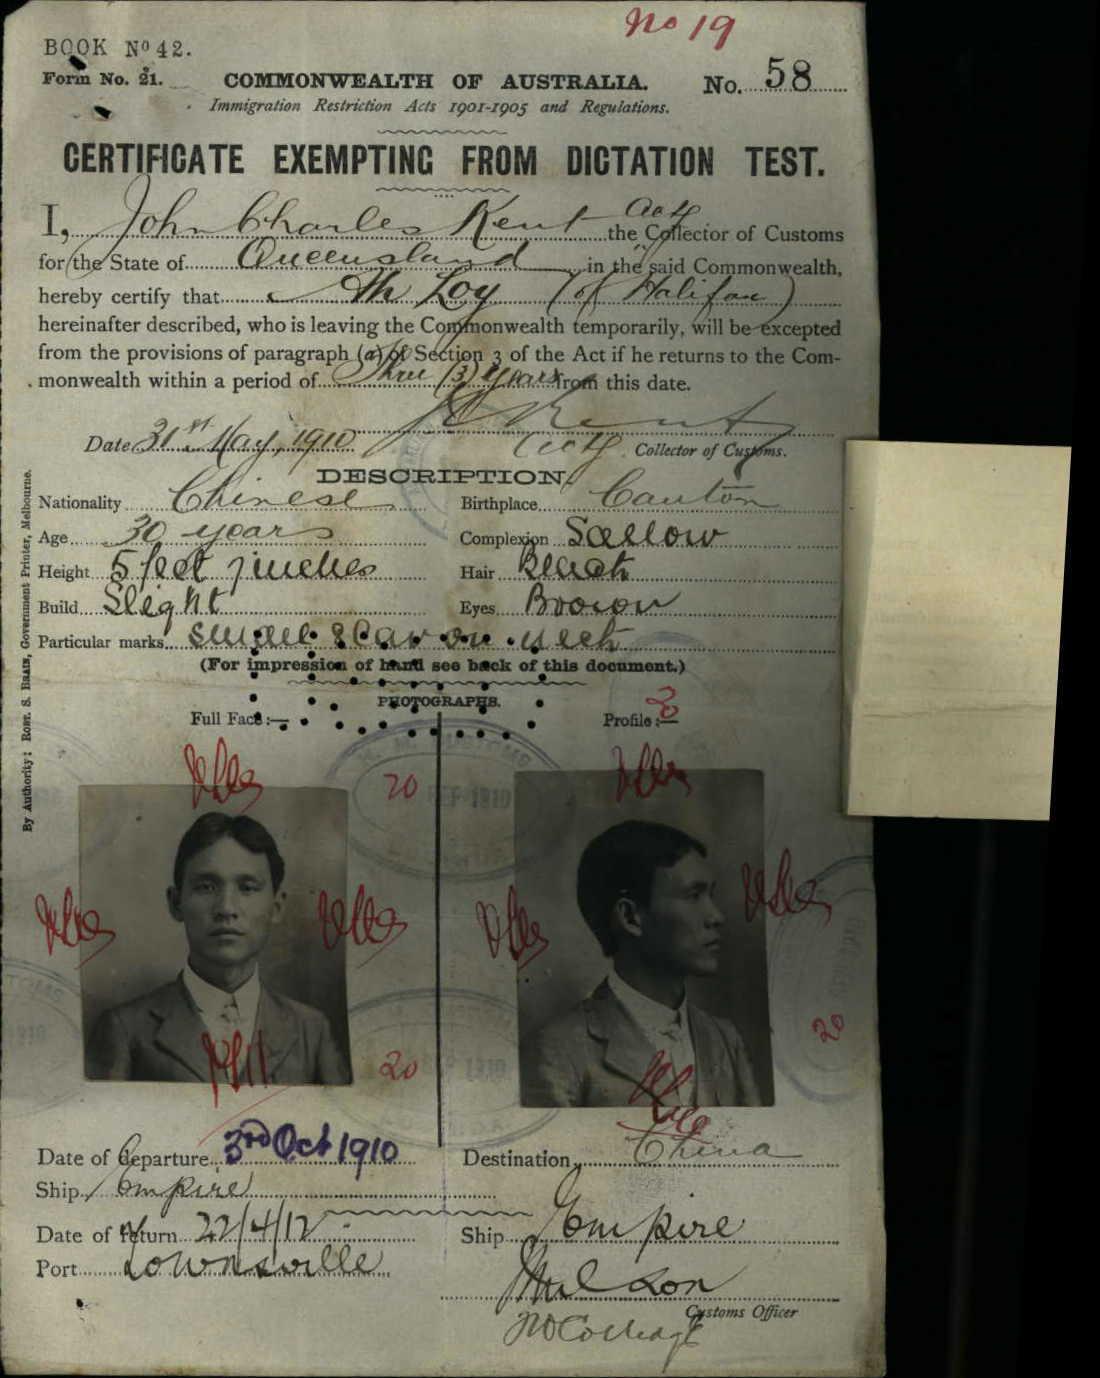 No 19
BOOK No 42.
Form No. 21.
COMMONWEALTH OF AUSTRALIA.
No. 58
Immigration Restriction Acts 1901-1905 and Regulations.
CERTIFICATE EXEMPTING FROM DICTATION TEST.
I, John Charles Kent Actg the Collector of Customs
for the State of Queensland in the said Commonwealth,
hereby certify that Ah Loy (of Halifax)
hereinafter described, who is leaving the Commonwealth temporarily, will be excepted
from the provisions of paragraph (a) of Section 3 of the Act if he returns to the Com-
monwealth within a period of Three (3) years from this date.
Date 31st May, 1910
J C Kent
Actg. Collector of Customs.
DESCRIPTION.
Nationality Chinese Birthplace Canton
Age 30 years Complexion Sallow
Height 5 feet 7 inches Hair Black
Build Slight Eyes Brown
Particular marks small scar on neck
(For impression of hand see back of this document.)
PHOTOGRAPHS.
Full Face:— Profile:—
20
20
20
Date of departure 3rd Oct 1910 Destination China
Ship Empire
Date of return 22/4/12 Ship Empire
Port Townsville
Customs Officer
By Authority: ROBT. S. BRAIN, Government Printer, Melbourne.